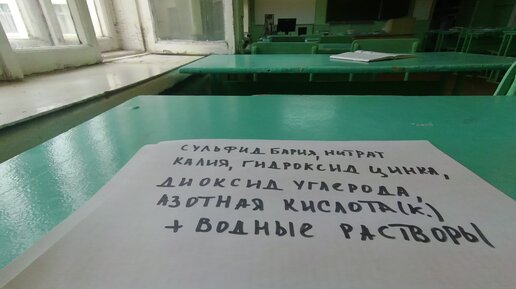 СУЛЬФИД БАРИЯ, НИТРАТ
КАЛИЯ, ГИДРОКСИД ЦИНКА,
ДИОКСИД УГЛЕРОДА,
АЗОТНАЯ КИСЛОТА (К.)
+ ВОДНЫЕ РАСТВОРЫ